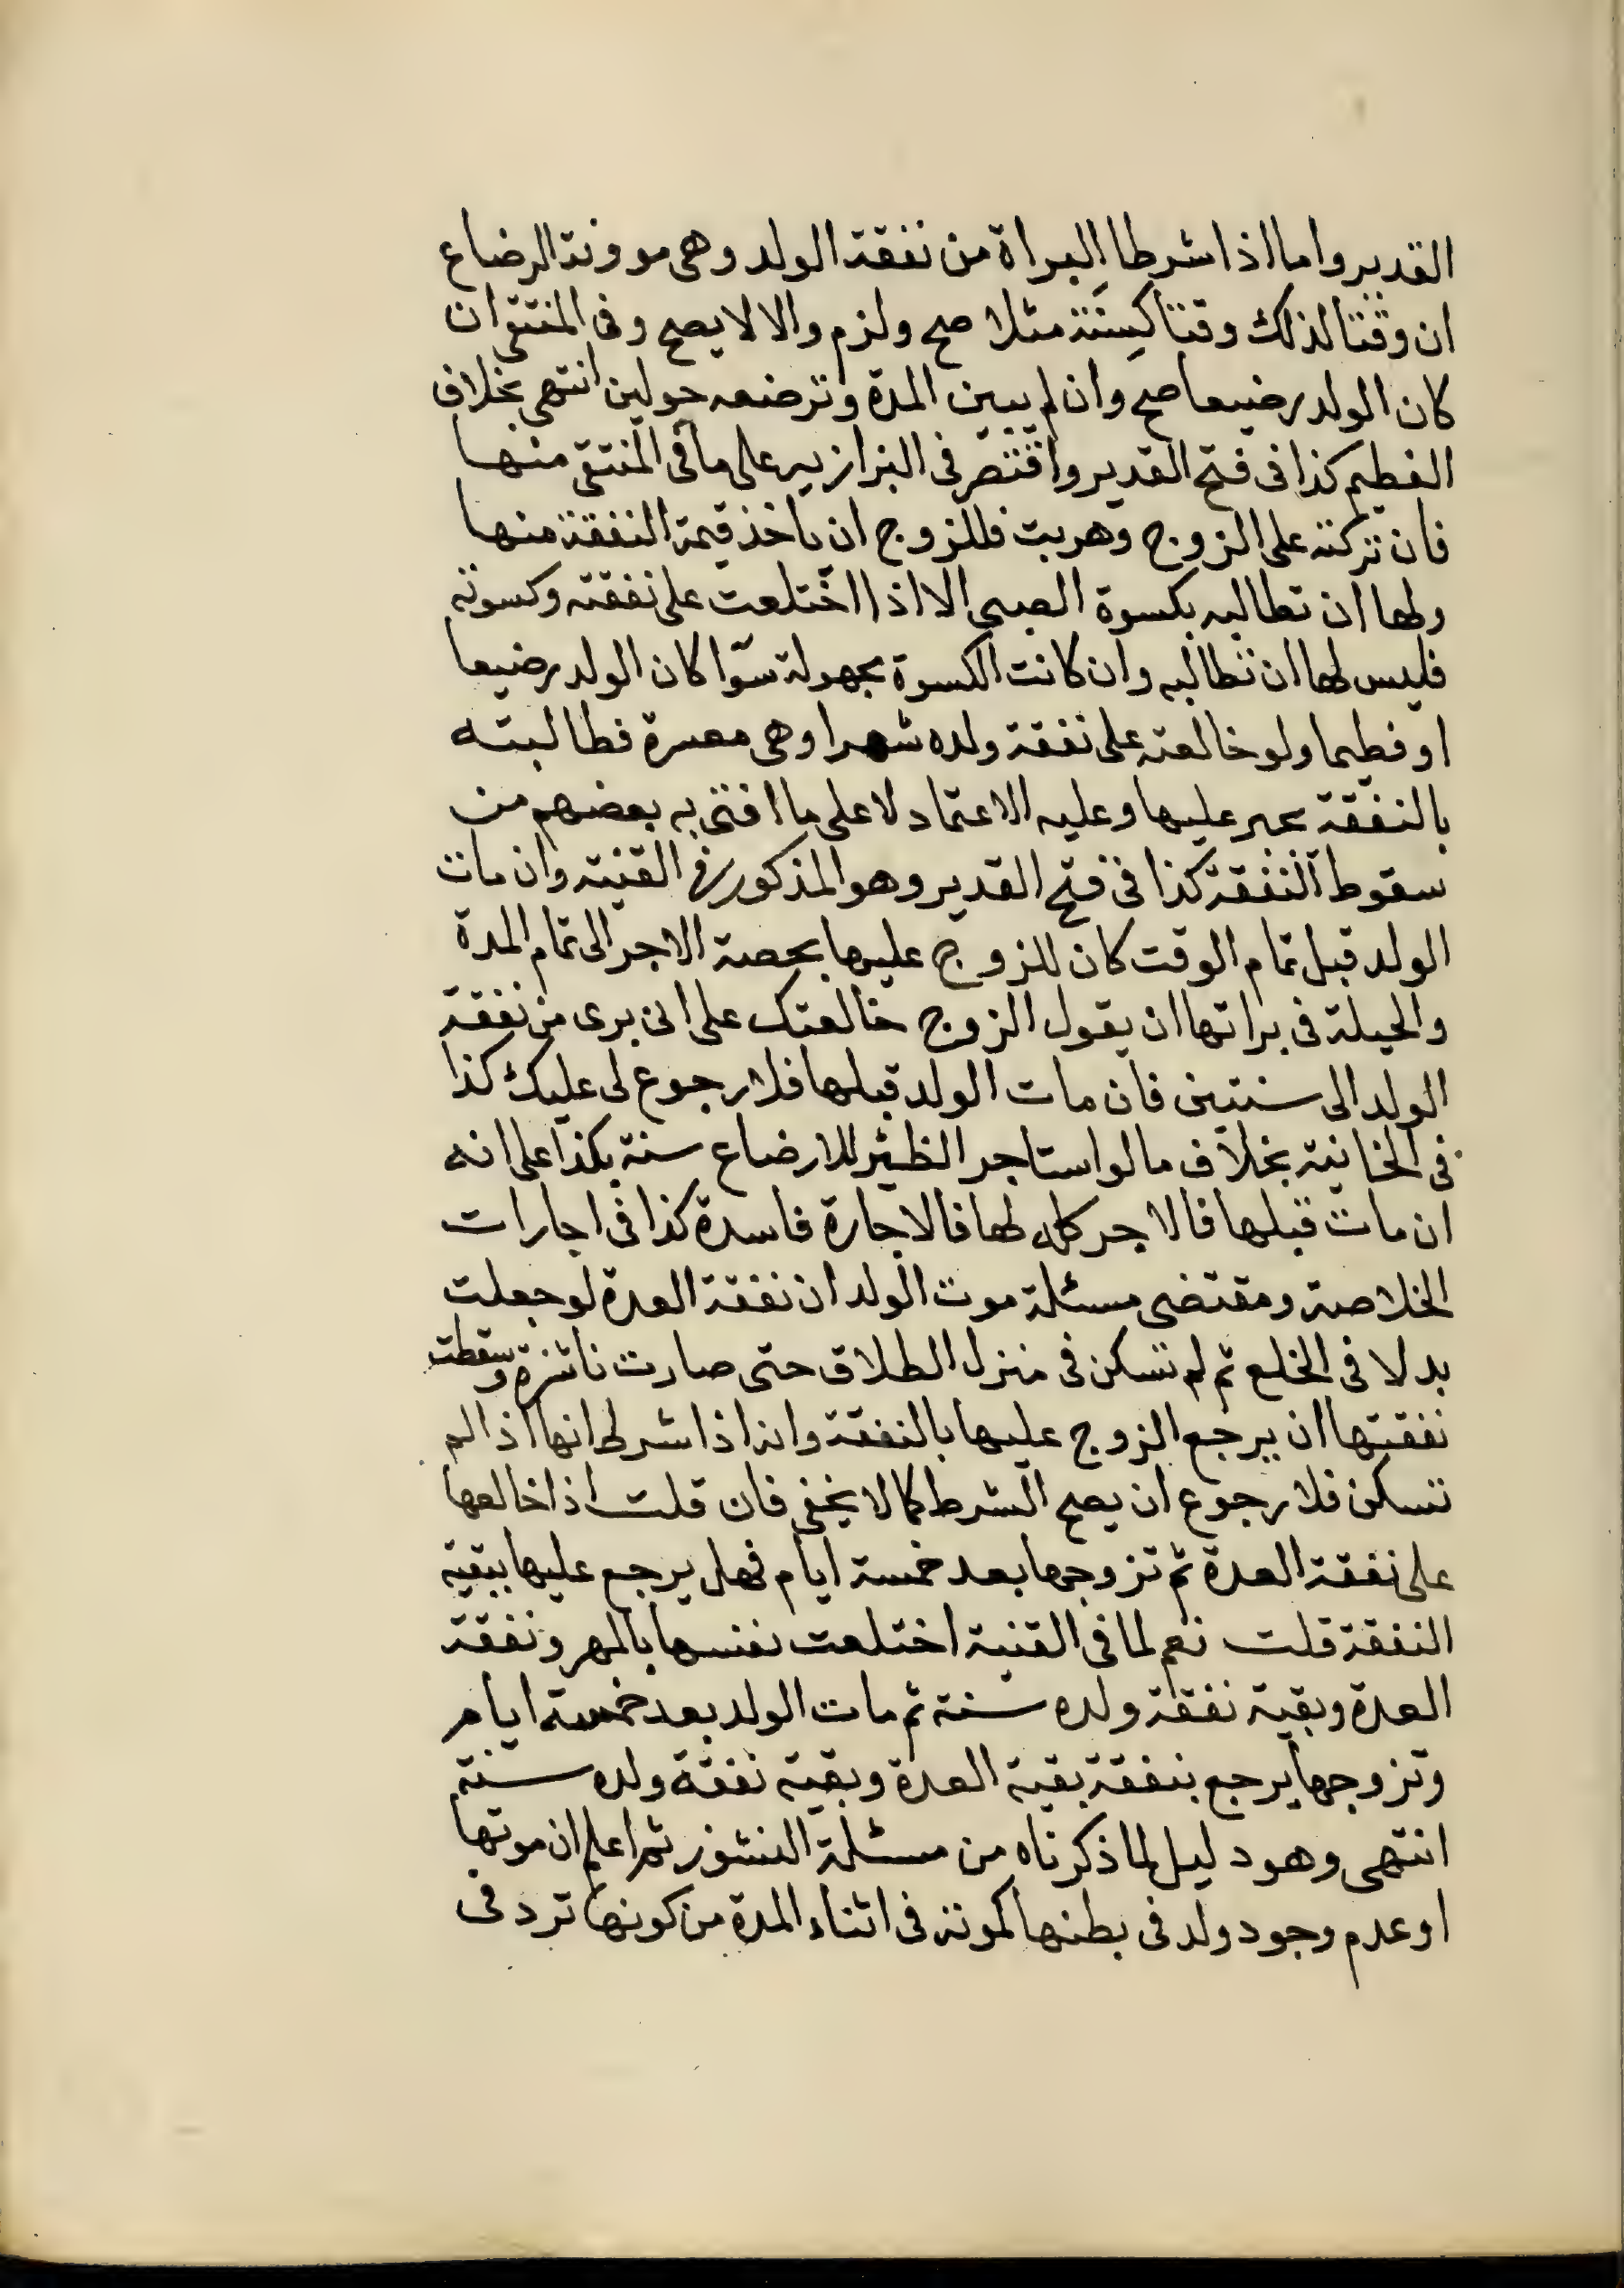 القدير واما اذا شرطا البراة من نفقة الولد وهى موونة الرضاع
ان وقتا لذلك وقتا كسنة مثلا صح ولزم والا لا يصح وفى المنتقى ان
كان الولد رضيعا صح وان لم يبين المدة وترضعه حولين انتهى بخلاف
الفطيم كذا فى فتح القدير واقتصر فى البزازيه على ما فى المنتقى منها
فان تركته على الزوج وهربت فللزوج ان ياخذ قيمة النفقة منها
ولها ان تطالبه بكسوة الصبى الا اذا اختلعت على نفقته وكسوته
فليس لها ان تطالبه وان كانت الكسوة مجهولة سوا كان الولد رضيعا
او فطيما ولو خالعته على نفقة ولده شهرا وهى معسرة فطالبته
بالنفقة يجبر عليها وعليه الاعتماد لا على ما افتى به بعضهم من
سقوط النفقة كذا فى فتح القدير وهو المذكور فى القنية وان مات
الولد قبل تمام الوقت كان للزوج عليها بحصة الاجر الى تمام المدة
والحيلة فى براتها ان يقول الزوج خالعتك على انى برى من نفقة
الولد الى سنتين فان مات الولد قبلها فلا رجوع لى عليك كذا
فى الخانية بخلاف ما لو استاجر الظئر للارضاع سنة بكذا على انه
ان مات قبلها فالاجر كله لها فالاجارة فاسدة كذا فى اجارات
الخلاصة ومقتضى مسئلة موت الولد ان نفقة العدة لو جعلت
بدلا فى الخلع ثم لم تسكن فى منزل الطلاق حتى صارت ناشزة وسقطت
نفقتها ان يرجع الزوج عليها بالنفقة وانه اذا شرط انها اذا لم
تسكن فلا رجوع ان يصح الشرط كما لا يخفى فان قلت اذا خالعها
على نفقة العدة ثم تزوجها بعد خمسة ايام فهل يرجع عليها ببقية
النفقة قلت نعم لما فى القنية اختلعت نفسها بالمهر ونفقة
العدة وبقية نفقة ولده سنة ثم مات الولد بعد خمسة ايام
وتزوجها يرجع بنفقة بقية العدة وبقية نفقة ولده سنة
انتهى وهو دليل لما ذكرناه من مسئلة النشوز ثم اعلم ان موتها
او عدم وجود ولد فى بطنها كموته فى اثناء المدة من كونها ترد فى